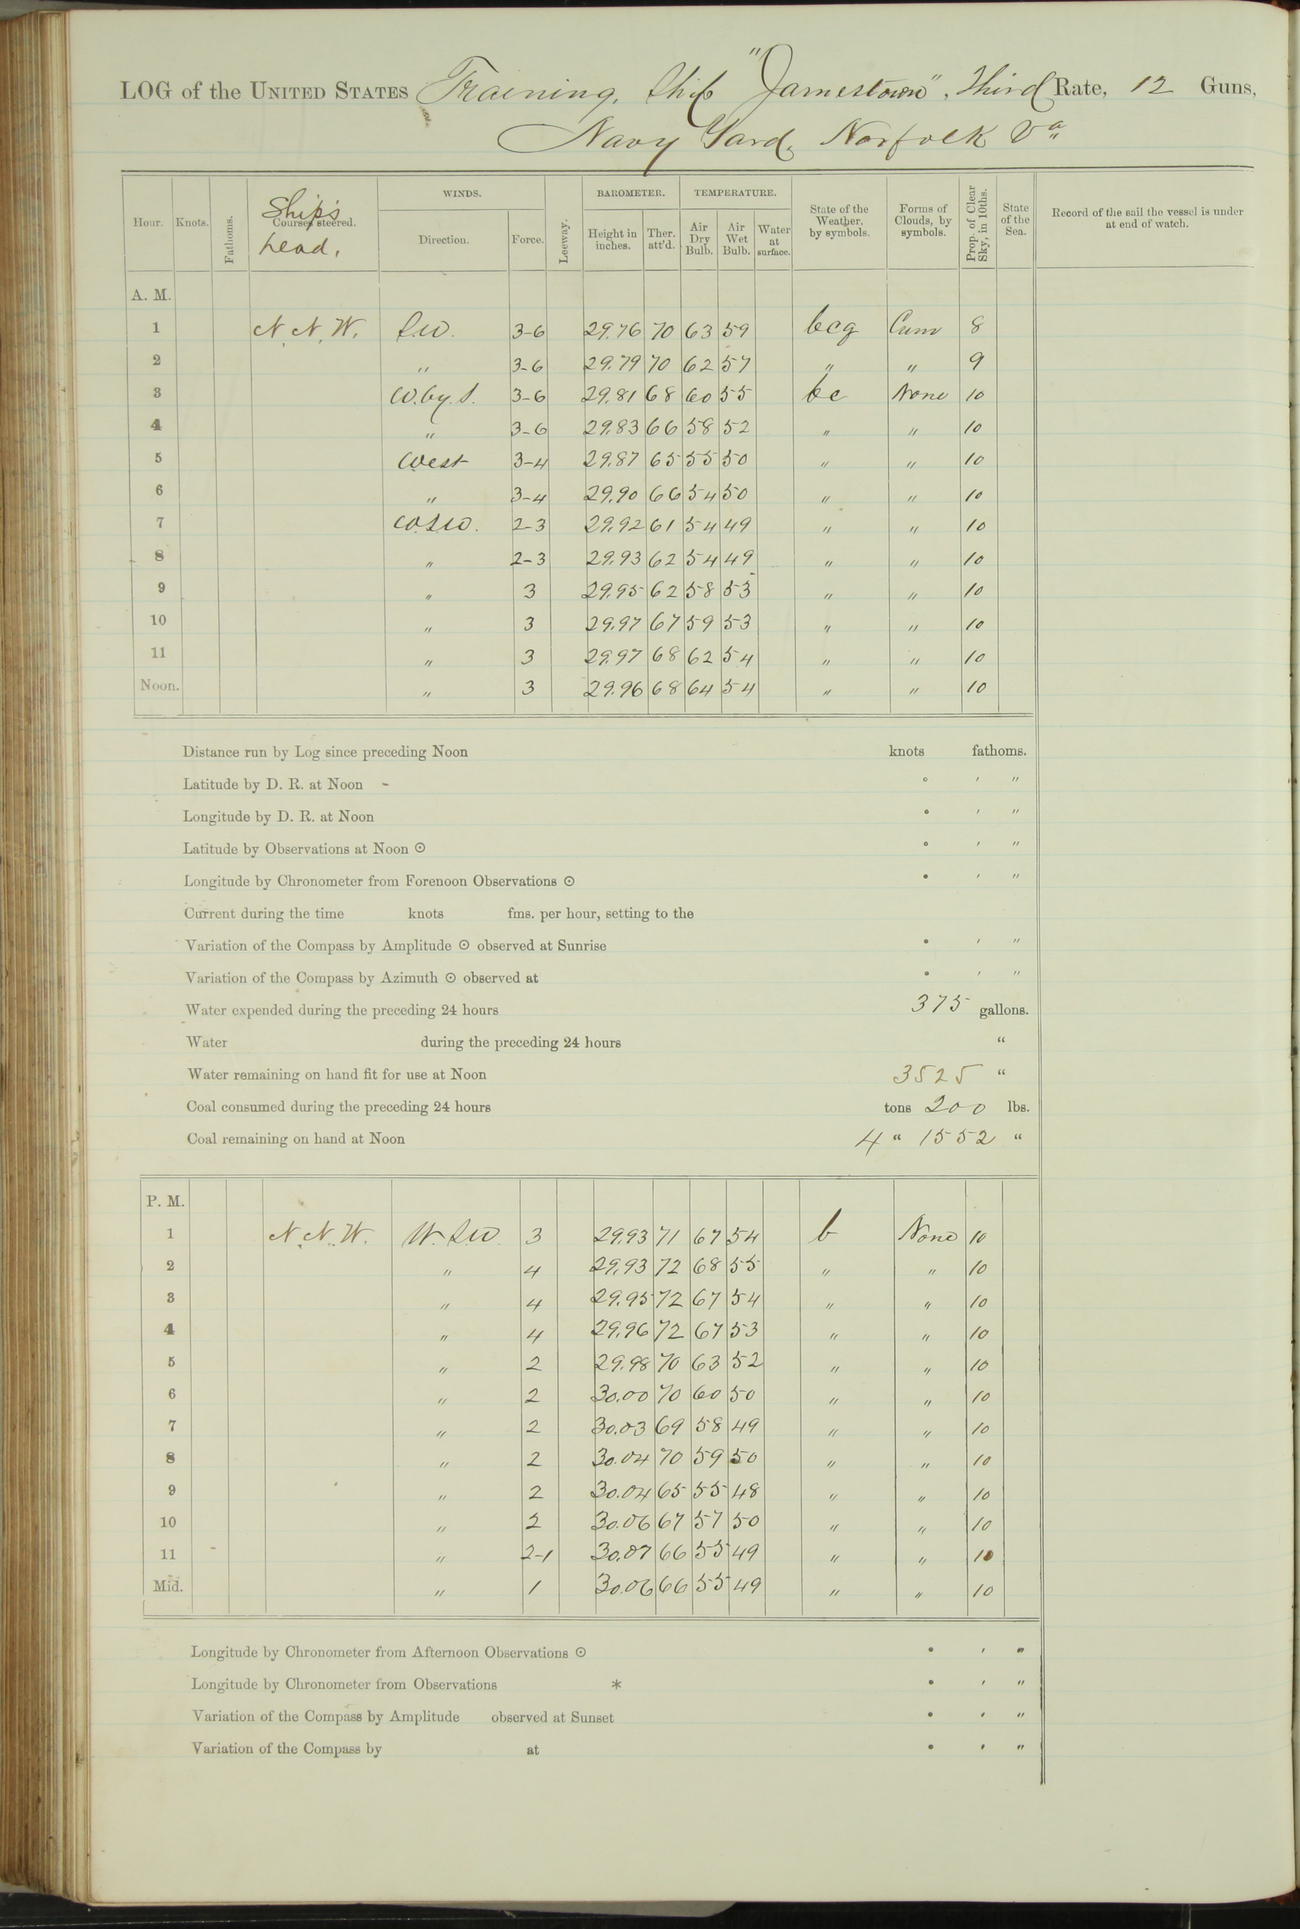 LOG of the UNITED STATES Training Ship "Jamestown", Third Rate, 12 Guns,
Navy Yard, Norfolk Va
Hour. Knots. Fathoms. Courses steered. Ship's head. WINDS. Direction. Force. Leeway. BAROMETER. Height in inches. Ther. att'd. TEMPERATURE. Air Dry Bulb. Air Wet Bulb. Water at surface. State of the Weather, by symbols. Forms of Clouds, by symbols. Prop. of Clear Sky, in 10ths. State of the Sea. Record of the sail the vessel is under at end of watch.
A. M.
1 N.N.W. S.W. 3-6 29.76 70 63 59 bcq Cum 8
2 " 3-6 29.79 70 62 57 " " 9
3 W.by.S. 3-6 29.81 68 60 55 bc None 10
4 " 3-6 29.83 66 58 52 " " 10
5 West 3-4 29.87 65 55 50 " " 10
6 " 3-4 29.90 66 54 50 " " 10
7 W.S.W. 2-3 29.92 61 54 49 " " 10
8 " 2-3 29.93 62 54 49 " " 10
9 " 3 29.95 62 58 53 " " 10
10 " 3 29.97 67 59 53 " " 10
11 " 3 29.97 68 62 54 " " 10
Noon. " 3 29.96 68 64 54 " " 10
Distance run by Log since preceding Noon knots fathoms.
Latitude by D. R. at Noon - ° ' "
Longitude by D. R. at Noon ° ' "
Latitude by Observations at Noon ☉ ° ' "
Longitude by Chronometer from Forenoon Observations ☉ ° ' "
Current during the time knots fms. per hour, setting to the
Variation of the Compass by Amplitude ☉ observed at Sunrise ° ' "
Variation of the Compass by Azimuth ☉ observed at ° ' "
Water expended during the preceding 24 hours 375 gallons.
Water during the preceding 24 hours "
Water remaining on hand fit for use at Noon 3525 "
Coal consumed during the preceding 24 hours tons 200 lbs.
Coal remaining on hand at Noon 4 " 1552 "
P. M.
1 N.N.W. W.S.W. 3 29.93 71 67 54 b None 10
2 " 4 29.93 72 68 55 " " 10
3 " 4 29.95 72 67 54 " " 10
4 " 4 29.96 72 67 53 " " 10
5 " 2 29.98 70 63 52 " " 10
6 " 2 30.00 70 60 50 " " 10
7 " 2 30.03 69 58 49 " " 10
8 " 2 30.04 70 59 50 " " 10
9 " 2 30.04 65 55 48 " " 10
10 " 2 30.06 67 57 50 " " 10
11 " 2-1 30.07 66 55 49 " " 10
Mid. " 1 30.06 66 55 49 " " 10
Longitude by Chronometer from Afternoon Observations ☉ ° ' "
Longitude by Chronometer from Observations * ° ' "
Variation of the Compass by Amplitude observed at Sunset ° ' "
Variation of the Compass by at ° ' "